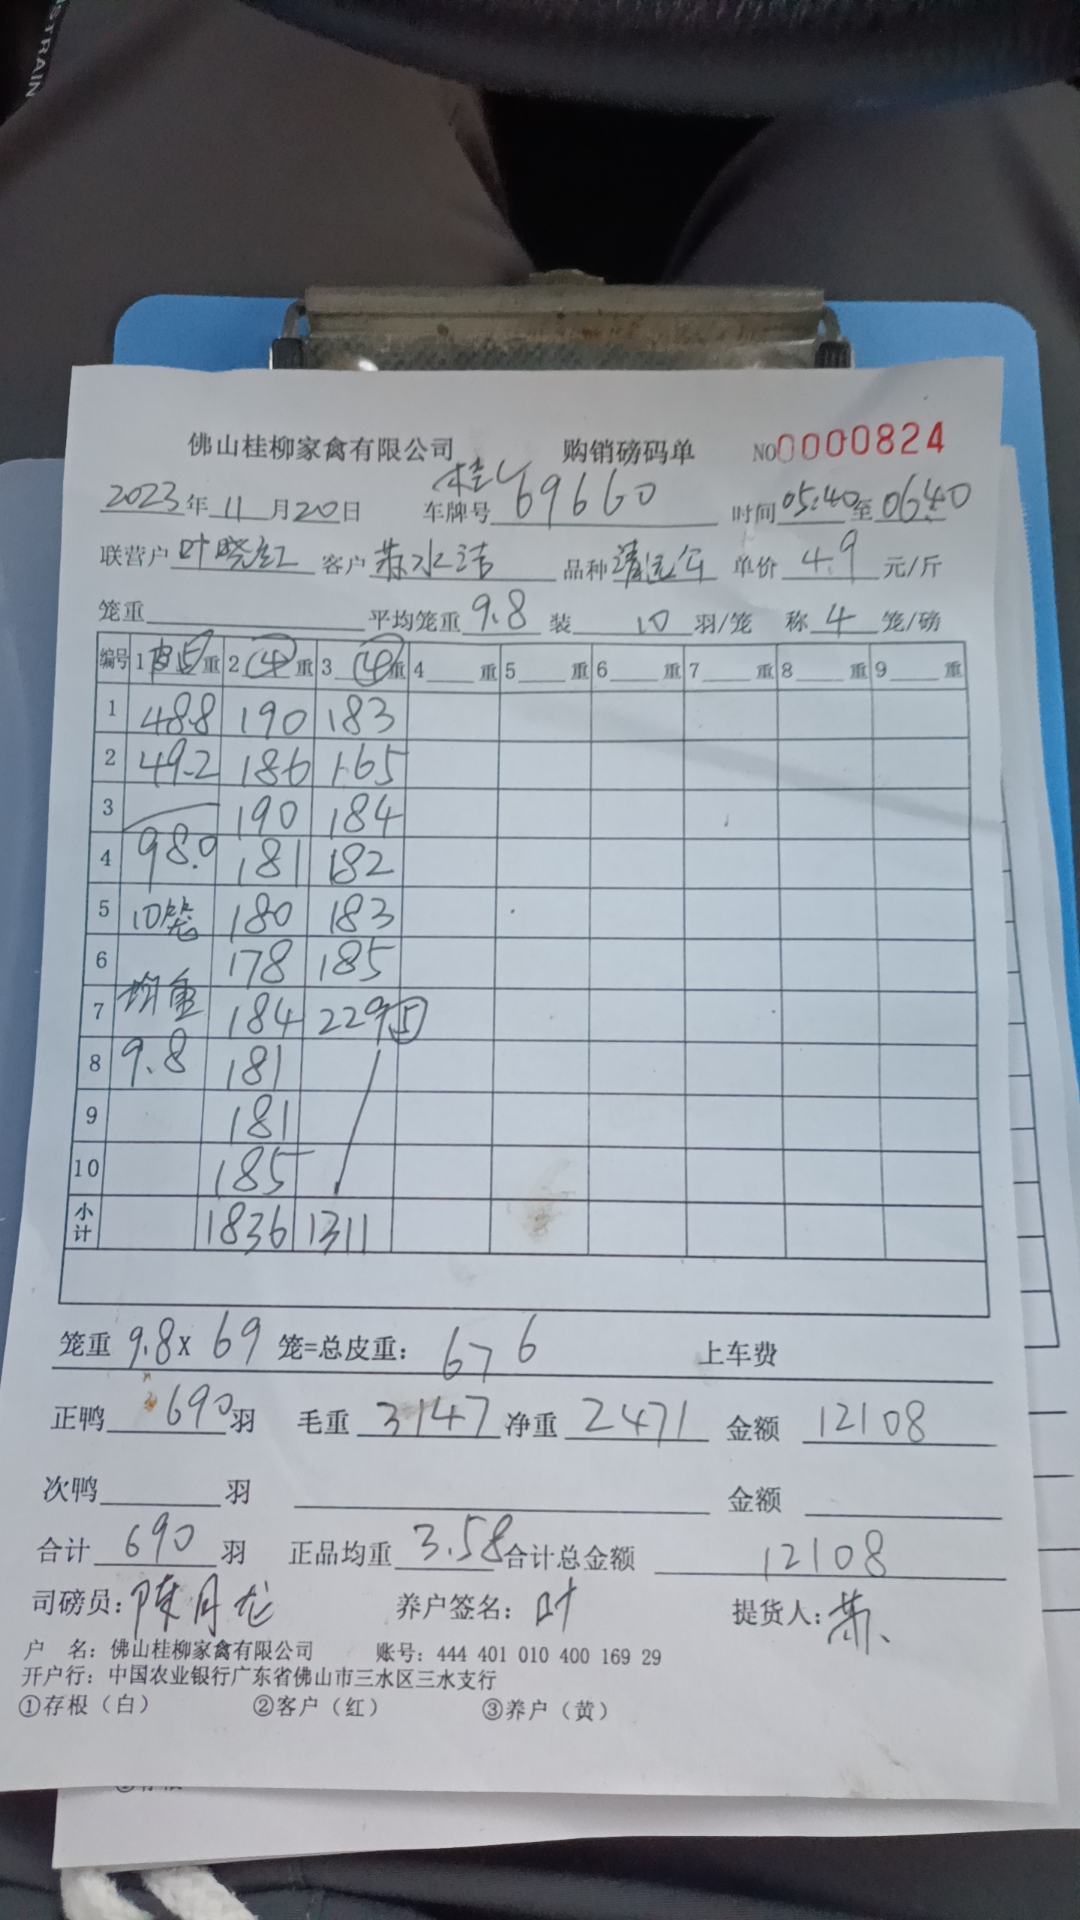 STRAIN
佛山桂柳家禽有限公司 购销磅码单 NO0000824
2023年11月20日 车牌号 桂L69660 时间05:40至06:40
联营户 叶晓红 客户 水洁 品种 清远 单价 4.9 元/斤
笼重 平均笼重 9.8 装 10 羽/笼 称 4 笼/磅
编号 1 皮5 重 2 4 重 3 4 重 4 重 5 重 6 重 7 重 8 重 9 重
1 48.8 190 183
2 49.2 186 165
3 190 184
4 98.0 181 182
5 10笼 180 183
6 178 185
7 均重 184 229 5
8 9.8 181
9 181
10 185
小计 1836 1311
笼重 9.8x 69 笼=总皮重: 676 上车费
正鸭 690羽 毛重 3147 净重 2471 金额 12108
次鸭 羽 金额
合计 690 羽 正品均重 3.58 合计总金额 12108
司磅员: 陈月龙 养户签名: 叶 提货人:
户 名: 佛山桂柳家禽有限公司 账号: 444 401 010 400 169 29
开户行: 中国农业银行广东省佛山市三水区三水支行
①存根（白） ②客户（红） ③养户（黄）